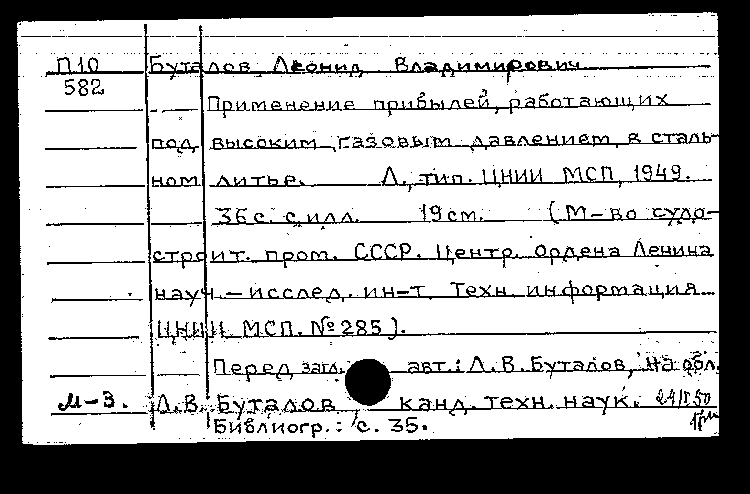 П10 Буталов, Леонид Владимирович
582
Применение прибылей, работающих
под высоким газовым давлением, в сталь-
ном литье. Л., тип. ЦНИИ МСП, 1949.
36 с. с илл. 19 см. (М-во судо-
строит. пром. СССР. Центр. ордена Ленина
науч.-исслед. ин-т. Техн. информация
ЦНИИ МСП. № 285).
Перед загл. авт.: Л.В. Буталов, на обл.
М-3. Л.В. Буталов канд. техн. наук.
Библиогр.: с. 35.